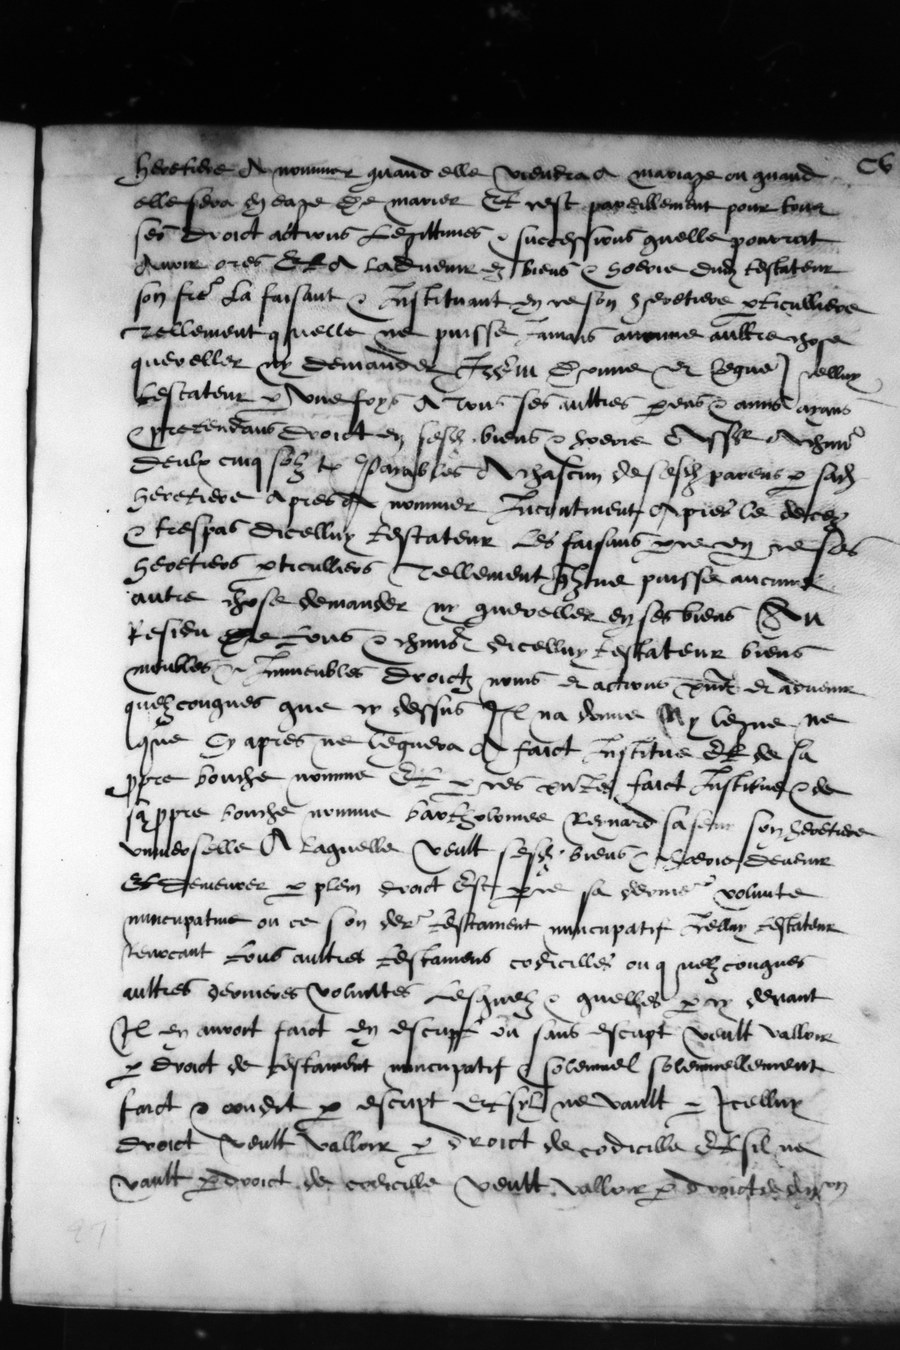 CV
heretiere A nommer quand elle viendra A mariage ou quand
elle sera en eage de marier Et cest pareillement pour tous
ses droict actions legittimes & successions quelle pourroit
Avoir ores Et A ladvenir es biens & hoerie dud testateur
son fre La faisant & Instituant en ce son heretiere pticulliere
Tellement quelle ne puisse Jamais aucune aultre chose
quereller ny demander Item donne et legue icelluy
testateur p Une foys A tous ses aultres parens & amis ayans
& pretendans droict en sesd biens & hoerie
deulx cinq solz tz payables A chascun de sesd parens p sad
heretiere Apres A nommer Incontinent Apres le deces
& trespas dicelluy testateur Les faisans en ce ses
heretiers pticulliers Tellement ne puisse aucune
autre chose demander ny quereller en ses biens Au
Residu de tous & dicelluy testateur biens
meubles & Immeubles droictz noms et actions et advenir
quelzconques que cy dessus Il na donne Ny legue ne
que Cy apres ne leguera A faict Institue Et de sa
ppre bouche nomme Et p ces faict Institue & de
sa ppre bouche nomme bartholomee Reynard sa seur son heretiere
universelle A laquelle veult sesd biens & hoerie devenir
Et demeurer p plein droict Est sa derniere volunte
nuncupative ou ce son der testament nuncupatif Icelluy testateur
revocant tous aultres testamens codicilles ou quelzconques
aultres dernieres voluntes Lesquelz & quelles p cy devant
Il en auroit faict en escript ou sans escript veult valloir
p droict de testament nuncupatif & solennel solennellement
faict & condit p escript Et syl ne vault p Icelluy
droict veult valloir p droict de codicille Et sil ne
vault p droict de codicille veult valloir p droict de